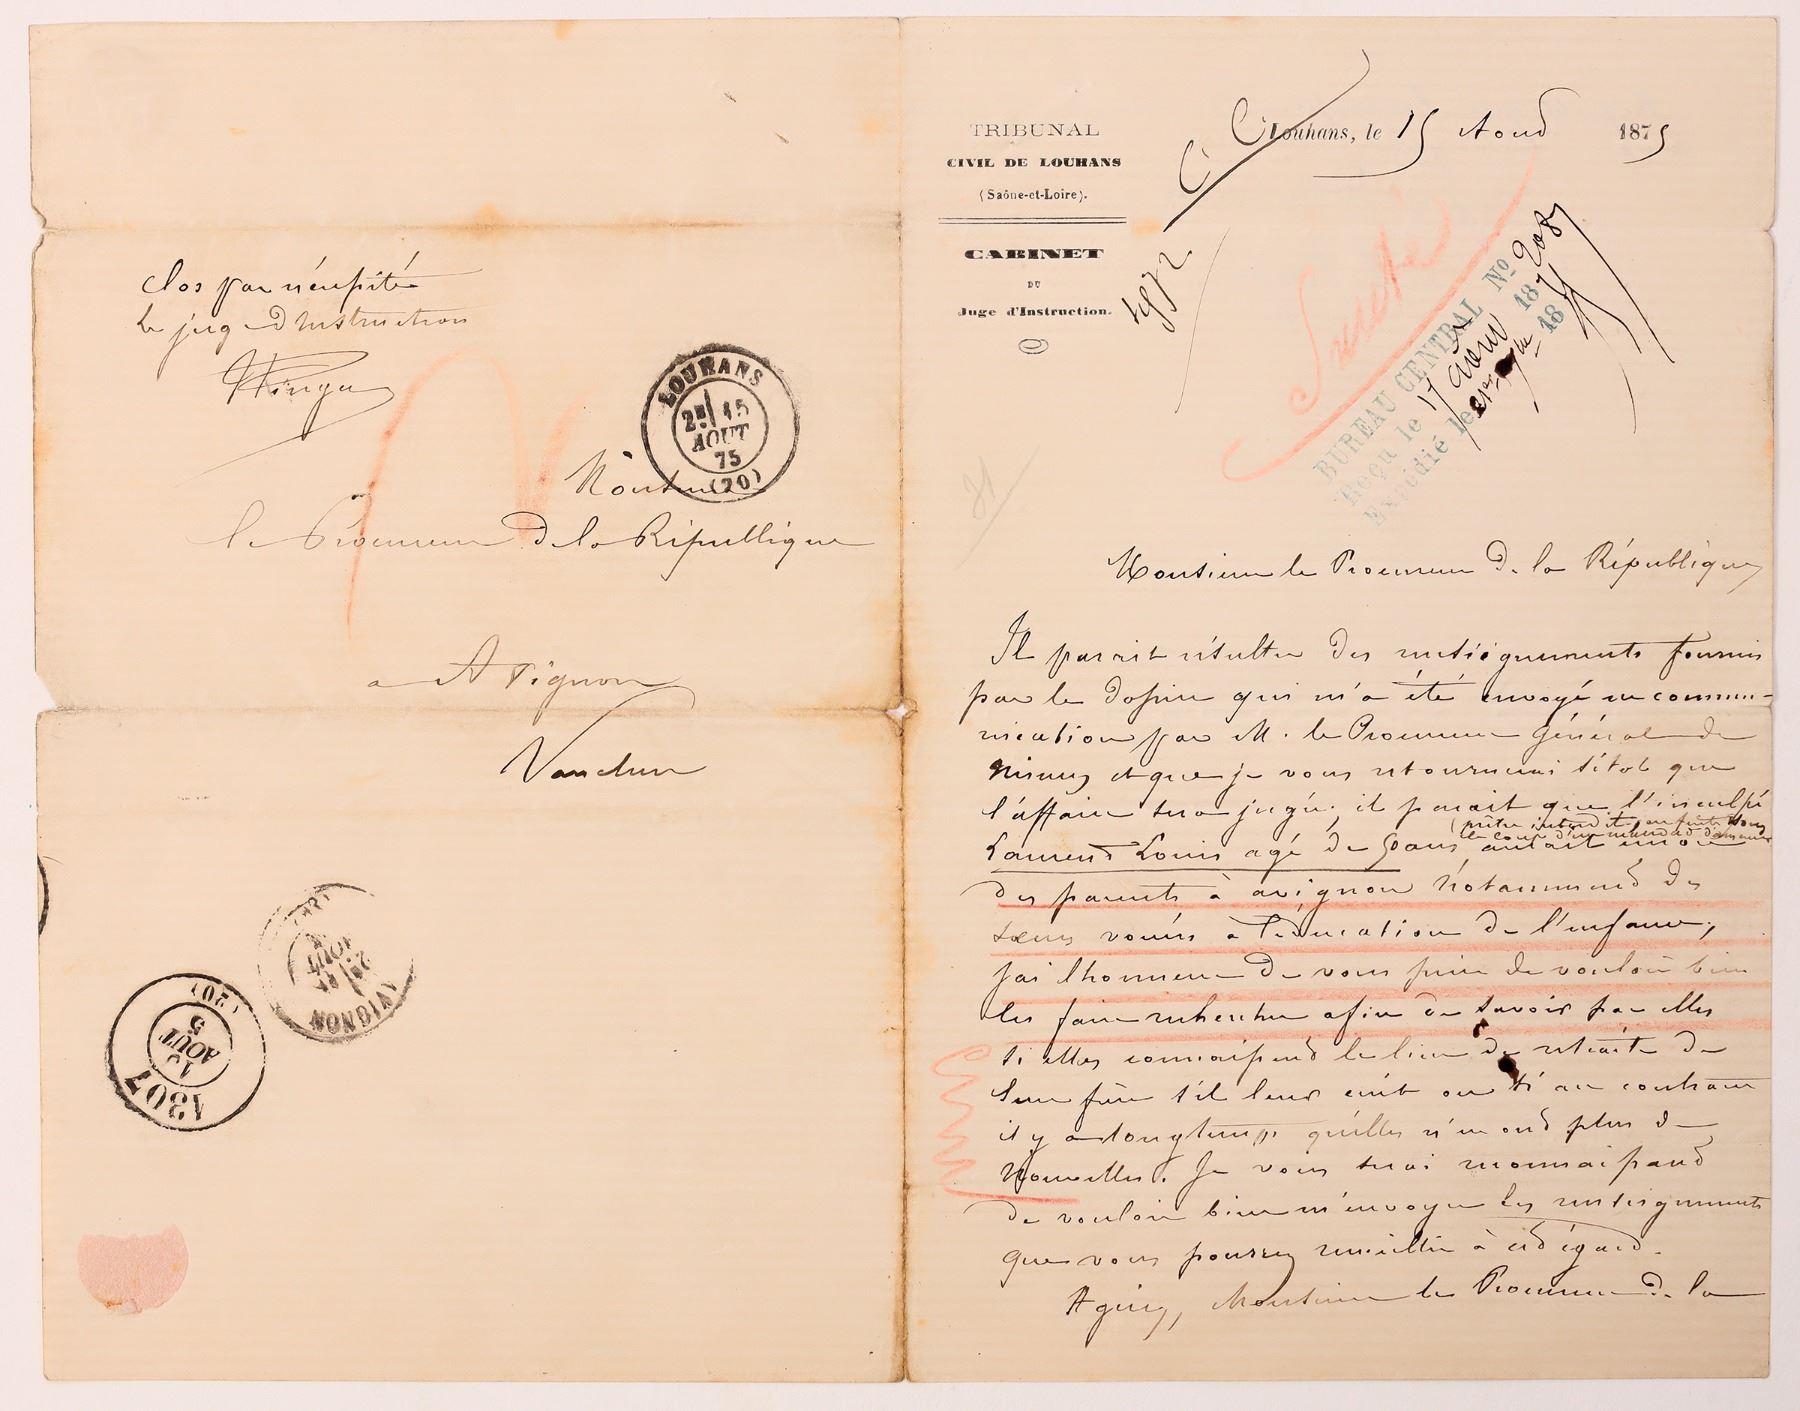 clos par nécessité
le juge d'instruction
LOUHANS
15
AOUT
75
(70)
Monsieur
le Procureur de la République
a Avignon
Vaucluse
AVIGNON
AOUT
1307
AOUT
5
TRIBUNAL
CIVIL DE LOUHANS
(Saône-et-Loire).
CABINET
DU
Juge d'Instruction.
Louhans, le 15 Aoud 1875
BUREAU CENTRAL No 208
Reçu le 17 août 187
Expédié le 18
Monsieur le Procureur de la République
Il parait résulter des renseignements fournis
par le dossier qui m'a été envoyé en commu-
nication par M. le Procureur Général de
Nismes et que je vous retournerai sitot que
l'affaire sera jugée, il parait que l'inculpé
Laurend Louis agé de 50 ans aurait encore
(prêtre interdit en fuite sous
le coup d'un mandad d'amener
des parents à avignon notammend des
sœurs vouées à l'éducation de l'enfance,
j'ai l'honneur de vous prier de vouloir bien
les faire rechercher afin de savoir par elles
si elles connaissend le lieu de retraite de
leur frère s'il leur écrit ou si au contraire
il y a longtemps qu'elles n'en ond plus de
nouvelles. Je vous serai reconnaissand
de vouloir bien m'envoyer les renseignements
que vous pourrez recueillir à ced égard.
Agréez, Monsieur le Procureur de la